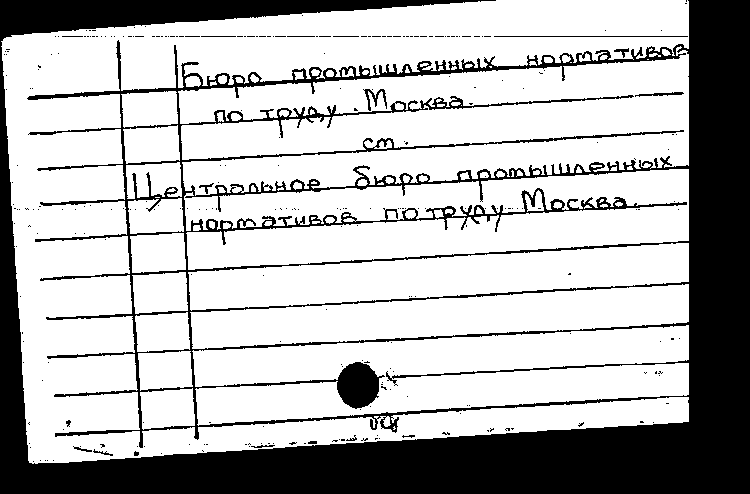 Бюро промышленных нормативов
по труду. Москва.
см.
Центральное бюро промышленных
нормативов по труду. Москва.